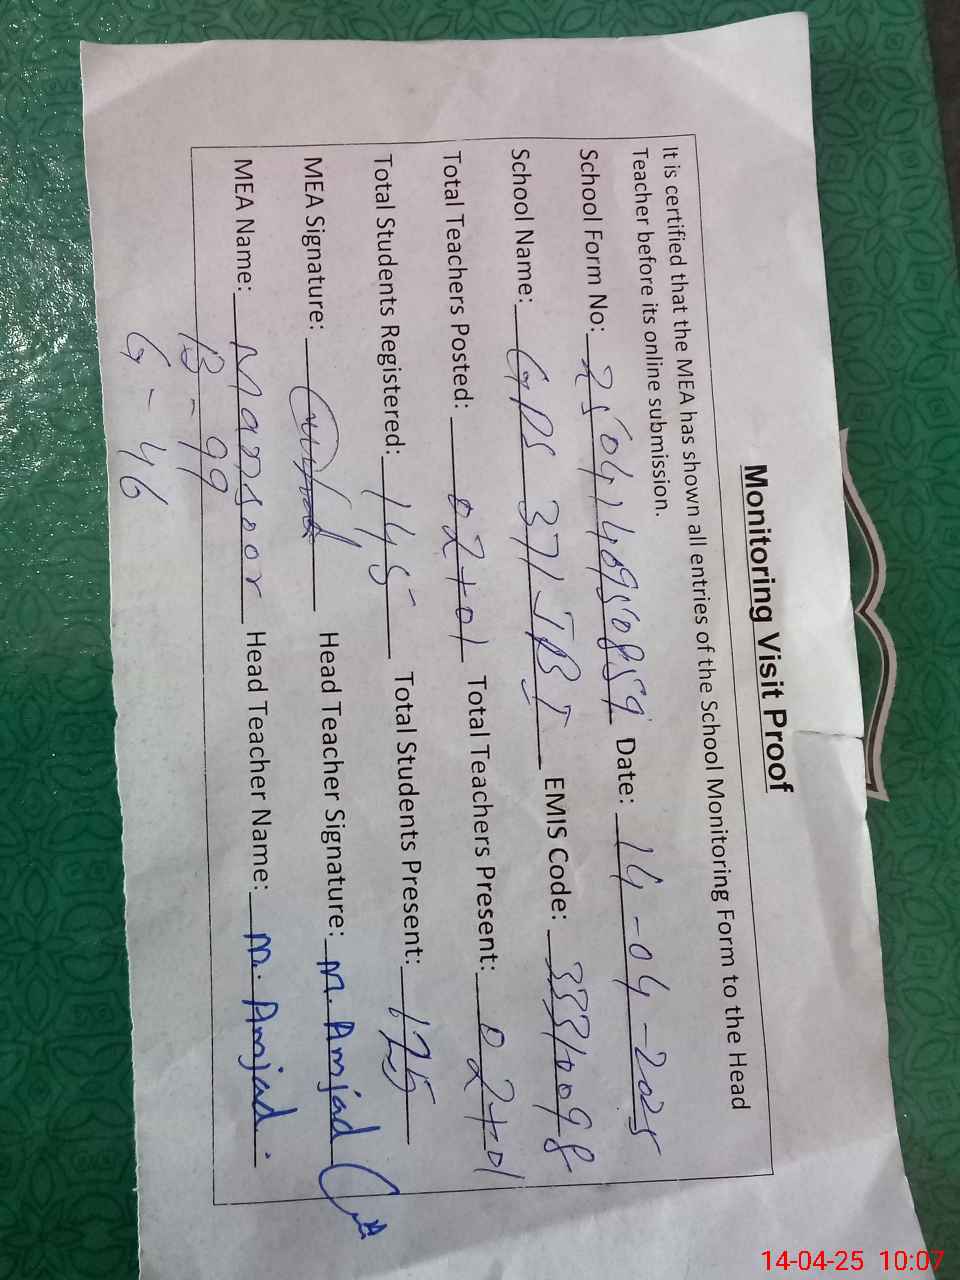 Monitoring Visit Proof
It is certified that the MEA has shown all entries of the School Monitoring Form to the Head
Teacher before its online submission.
School Form No: 2504140950859 Date: 14-04-2025
School Name: GPS 371 JB I EMIS Code: 33310098
Total Teachers Posted: 02+01 Total Teachers Present: 02+01
Total Students Registered: 145 Total Students Present: 125
MEA Signature: Head Teacher Signature: M. Amjad
MEA Name: Mansoor Head Teacher Name: M. Amjad.
B - 99
G - 46
14-04-25 10:07